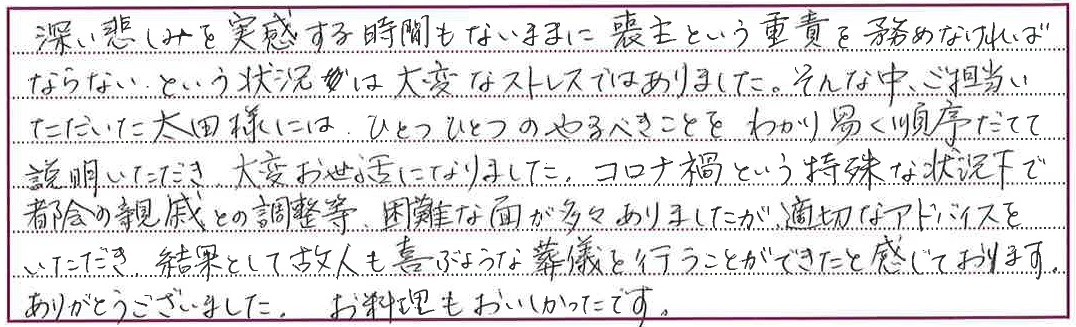 深い悲しみを実感する時間もないままに喪主という重責を務めなければ
ならない.という状況は大変なストレスではありました。そんな中、ご担当い
ただいた太田様には、ひとつひとつのやるべきことを わかり易く順序だてて
説明いただき、大変お世話になりました。コロナ禍という特殊な状況下で
都会の親戚との調整等、困難な面が多々ありましたが、適切なアドバイスを
いただき、結果として故人も喜ぶような葬儀を行うことができたと感じております。
ありがとうございました。 お料理もおいしかったです。